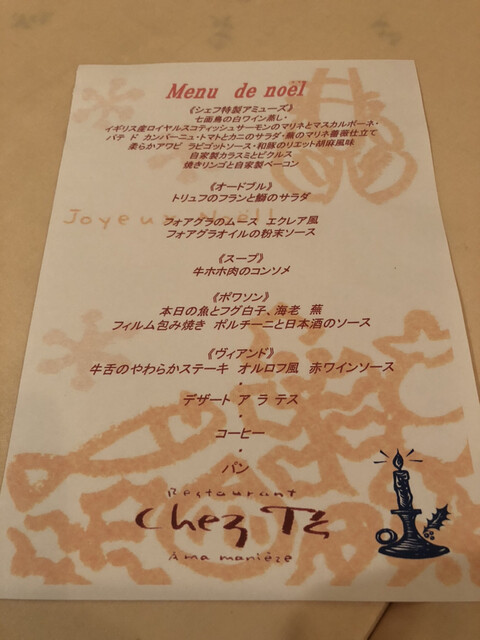 Menu de noël
《シェフ特製アミューズ》
七面鳥の白ワイン蒸し・
イギリス産ロイヤルスコティッシュサーモンのマリネとマスカルポーネ・
パテ ド カンパーニュ・トマトとカニのサラダ・蕪のマリネ薔薇仕立て
柔らかアワビ ラビゴットソース・和豚のリエット胡麻風味
自家製カラスミとピクルス
焼きリンゴと自家製ベーコン
《オードブル》
トリュフのフランと鰤のサラダ
Joyeux Noël!
フォアグラのムース エクレア風
フォアグラオイルの粉末ソース
《スープ》
牛ホホ肉のコンソメ
《ポワソン》
本日の魚とフグ白子、海老 蕪
フィルム包み焼き ポルチーニと日本酒のソース
《ヴィアンド》
牛舌のやわらかステーキ オルロフ風 赤ワインソース
・
デザート ア ラ テス
・
コーヒー
・
パン
Restaurant
Chez
A ma manière